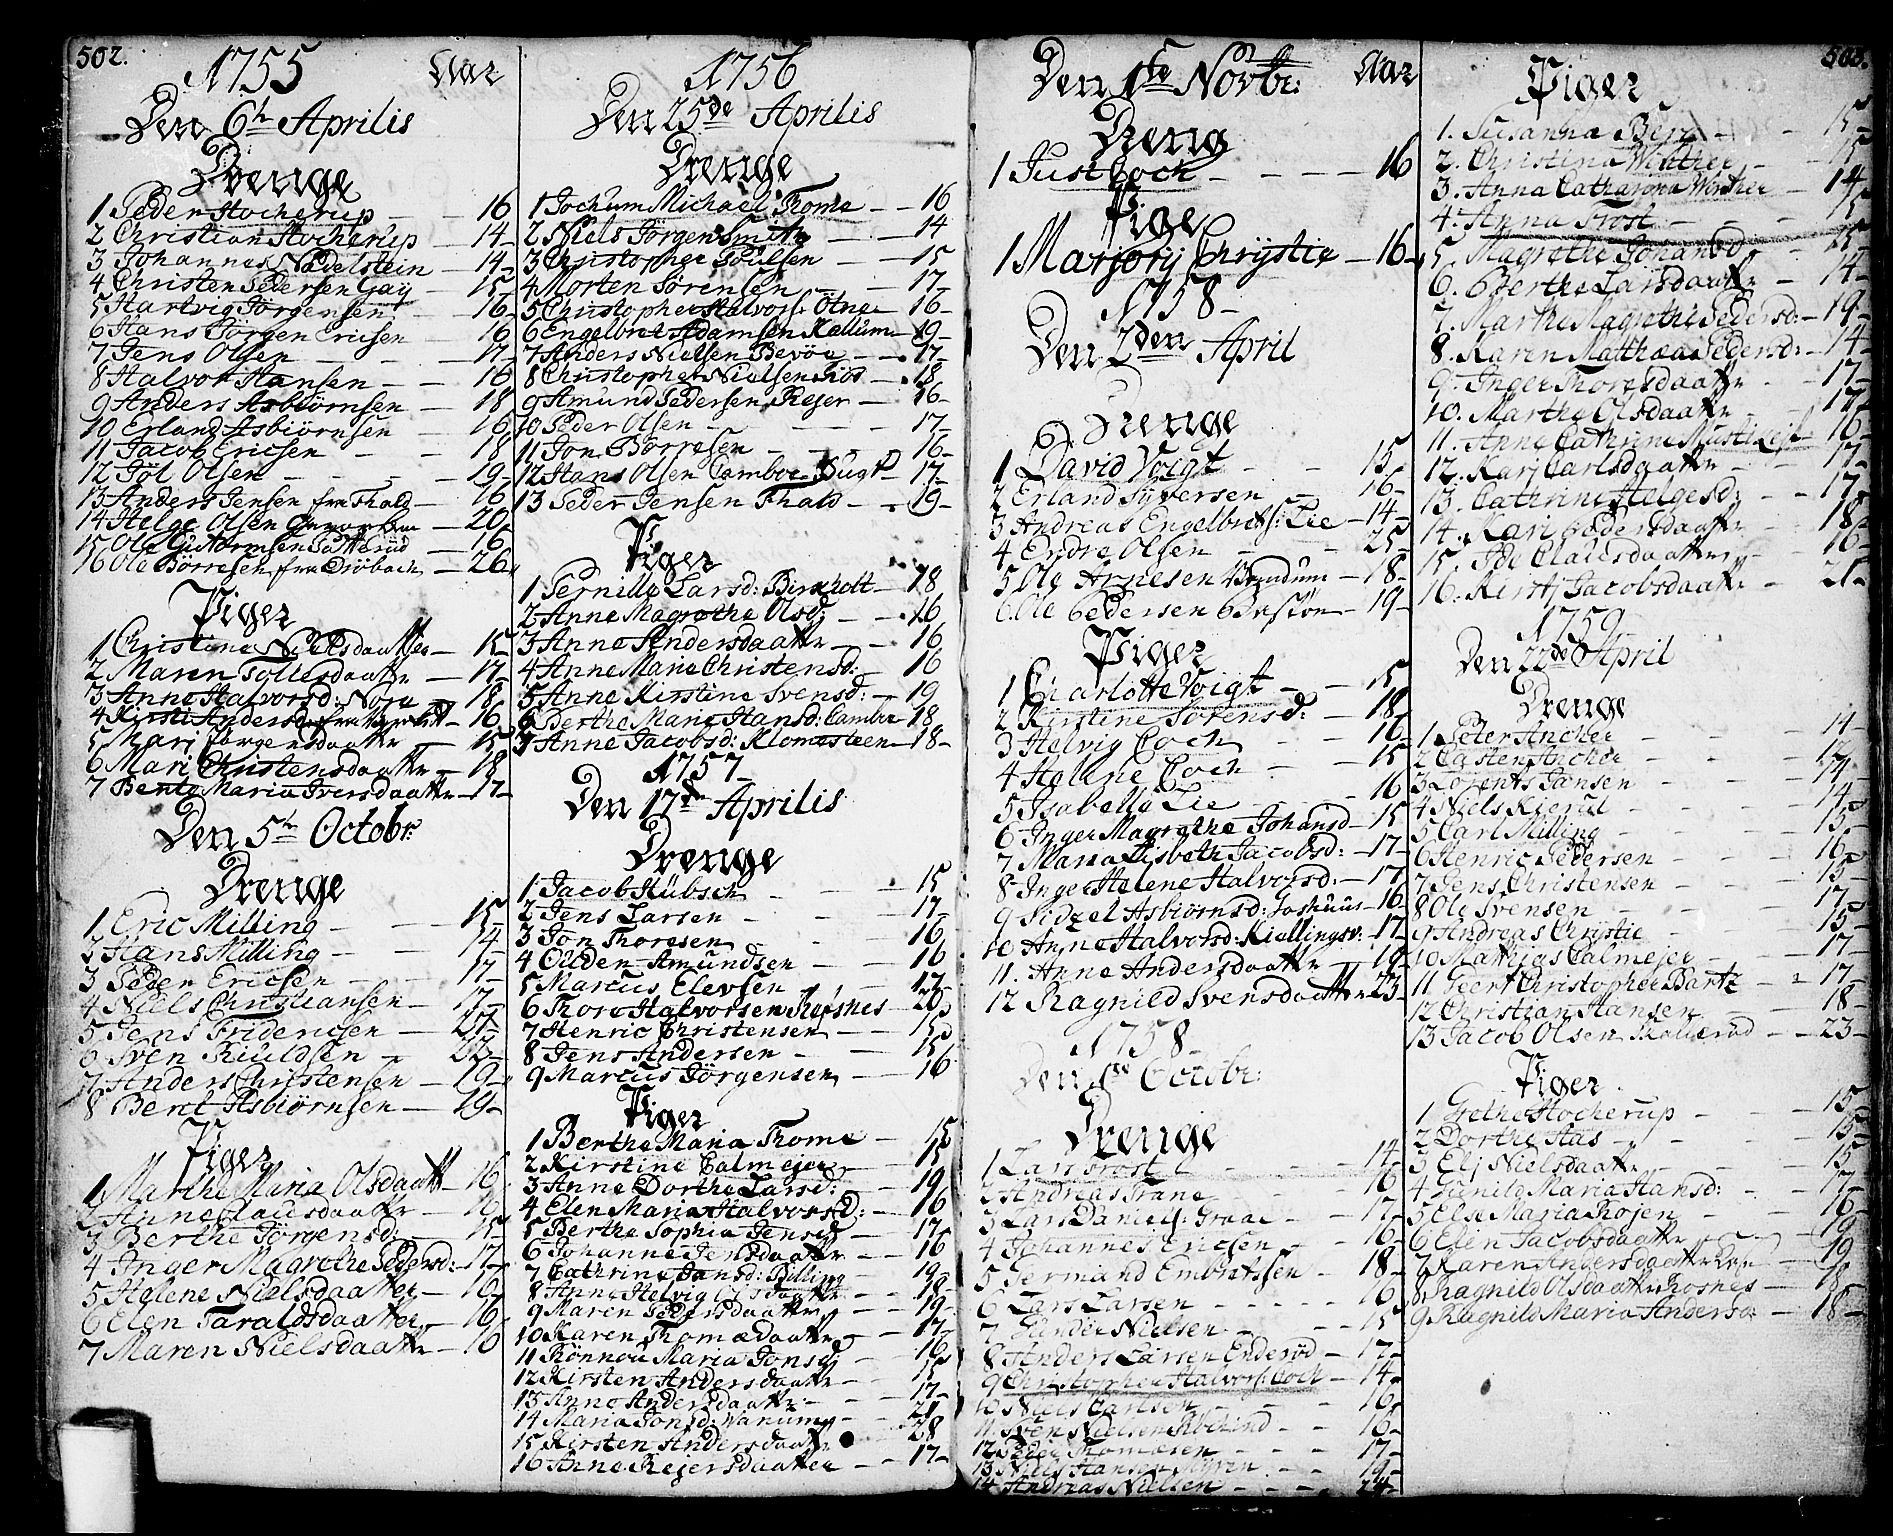 502.
1755 Aar
Den 6th Aprilis
Drenge
1 Peder Hocherup — 16
2 Christian Hocherup — 14
3 Johannes Nadelstein — 14
4 Christen Pedersen Gay — 15
5 Hartvig Jörgensen — 16
6 Hans Jörgen Ericsen 16
7 Jens Olsen — 17
8 Halvor Hansen — 16
9 Anders Asbiörnsen — 18
10 Erland Asbiörnsen — 16
11 Jacob Ericsen — 18
12 Jol Olsen — 19
13 Anders Jensen fra Thald — 16
14 Helge Olsen — 20
15 Ole Guttormsen — 16
16 Ole Börresen fra Dröbach — 26
Piger
1 Christine Nielsdaatter — 15
2 Maren Tollefsdaattr — 17
3 Anne Halvorsd: — 18
4 Kirsti Andersd: — 16
5 Mari Jörgensdaattr — 15
6 Mari Christensdaattr — 18
7 Bente Maria Iversdaattr — 17
Den 5th Octobr:
Drenge
1 Eric Milling — 15
2 Hans Milling — 14
3 Peder Ericsen — 17
4 Niels Christiansen — 17
5 Jens Fridericsen —
6 Sven — 22
7 Anders Christensen — 19
8 Bent Asbiörnsen — 19
Piger
1 Marthe Maria Olsdaattr — 16
2 Anne Clausdaattr —
3 Berthe Jörgensd: — 15
4 Inger Magrethe Pedersd: — 17
5 Helene Nielsdaatter — 16
6 Elen Taraldsdaatter — 16
7 Maren Nielsdaattr — 16
1756
Den 25de Aprilis
Drenge
1 Jochum Michael Thome — 16
2 Niels Jörgen Smith — 14
3 Christopher Poulsen — 15
4 Morten Sörensen — 17
5 Christopher Halvors: Otne — 16
6 Engelbret Adamsen Kallum — 19
7 Anders Nielsen Bevöe — 17
8 Christopher Nielsen — 18
9 Amund Pedersen Rejer — 16
10 Peder Olsen — 17
11 Jon Börresen — 16
12 Hans Olsen Camboe — 17
13 Peder Jensen Thald — 19
Piger
1 Pernille Larsd: Birkholt — 18
2 Anne Magrethe Olsd: — 16
3 Anne Andersdaattr — 16
4 Anne Marie Christensd: 16
5 Anne Kirstine Svensd: — 19
6 Berthe Marie Hansd: Camboe 18
7 Anne Jacobsd: Klomesteen — 18
1757
Den 17de Aprilis
Drenge
1 Jacob Hübsch — 15
2 Jens Larsen — 17
3 Jon Thoresen — 16
4 Odden Amundsen — 16
5 Marcus Elevsen — 17
6 Thore Halvorsen — 20
7 Henric Christensen — 15
8 Jens Andersen — 15
9 Marcus Jörgensen — 16
Piger
1 Berthe Maria Thome — 15
2 Kirstine Calmejer — 15
3 Anne Dorthe Larsd: — 19
4 Elen Maria Halvorsd: — 16
5 Berthe Sophia Jensd: — 17
6 Johanne Jensdaattr — 16
7 Cathrine Hansd: Billing — 19
8 Anne Helvig Olsdaattr — 18
9 Maren Pedersdaattr — 19
10 Karen Thomædaattr — 17
11 Rönnou Maria Jonsd: — 16
12 Kirsten Andersdaattr — 15
13 Anne Andersdaattr — 17
14 Maria Jonsd: — 21
15 Kirsten Andersdaattr 28
16 Anne Rejersdaatter — 17
Den 1ste Novbr: Aar
Dreng
1 Just Coch — 16
Pige
1 Marjorij Chrijstie — 16
1758
Den 2den April
Drenge
1 David Voigt — 15
2 Erland Syversen — 16
3 Andreas Engelbrets: Lie — 14
4 Endre Olsen — 25
5 Ole Arnesen — 18
6 Ole Pedersen — 19
Piger
1 Charlotte Voigt — 15
2 Kirstine Sörensd: — 18
3 Helvig Coch — 16
4 Helene Coch — 15
5 Isabella Lie — 16
6 Inger Magrethe Johansd — 15
7 Maria Lisbeth Jacobsd: — 17
8 Inger Helene Halvorsd: — 17
9 Sidzel Asbiörnsd: — 16
10 Anne Halvorsd: — 17
11. Anne Andersdaattr — 19
12 Ragnild Svensdaattr 23
1758
Den 1ste Octobr:
Drenge
1 Lars Frost — 14
2 Andreas Trane — 16
3 Lars Daniels: Graae — 17
4 Johannes Ericsen — 16
5 Germand Embretsen — 18
6 Lars Larsen — 16
7 Gunder Nielsen — 15
8 Anders Larsen Enderöd — 17
9 Christopher Halvors: Coch — 14
10 Niels Carlsen — 16
11 Sven Nielsen — 16
12 Peder Thomæsen — 17
13 Niels Hansen — 19
14 Andreas Nielsen — 24
503.
Piger
1. Susanna Berg — 15
2. Christina Winther — 15
3. Anna Catharena Winther — 14
4. Anna Frost — 15
5. Magrethe Johansd — 15
6. Berthe Larsdaattr — 14
7. Marthe Magrethe Pedersd: — 19
8. Karen Matthæa Pedersd: — 14
9. Inger Thoresdaattr — 17
10. Marthe Olsdaattr — 17
11. Anne Cathrine — 16
12. Kari Carlsdaattr — 17
13. Cathrine Helgesd: — 17
14. Kari Pedersdaattr — 18
15. Ide Clausdaattr — 16
16. Kirsti Jacobsdaattr — 21
1759
Den 22de April
Drenge
1 Peter Ancher — 14
2 Casten Ancher —
3 Lorents Jansen — 14
4 Niels Kierul — 14
5 Carl Milling — 15
6 Henric Pedersen — 16
7 Jens Christensen — 15
8 Ole Svensen — 17
9 Andreas Christie — 15
10 Mathias Calmejer — 17
11 Geert Christopher Bartz — 17
12 Christian Hansen — 18
13 Jacob Olsen — 23
Piger
1 Grethe Hocherup — 15
2 Dorthe Has — 15
3 Elj Nielsdaattr — 15
4 Gunild Maria Hansd: — 17
5 Else Maria Rojen — 16
6 Elen Jacobsdaattr — 19
7 Karen Andersdaattr — 19
8 Ragnild Olsdaattr Rosnes — 18
9 Ragnild Maria Andersd: — 18